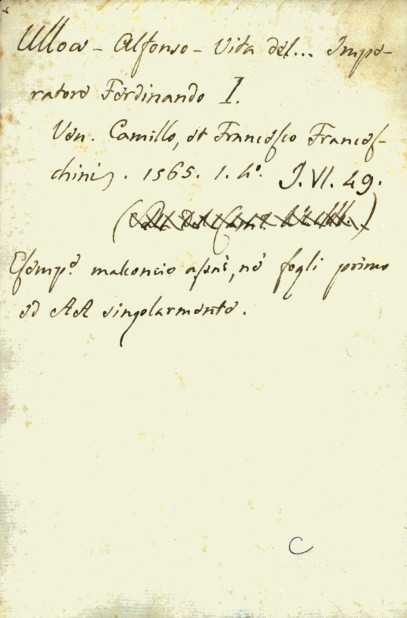 Ulloa - Alfonso - Vita del... Impe-
ratore Ferdinando I.
Ven. Camillo, et Francesco Frances-
chini. 1565. 1. 4º. J. VI. 49.
Esempº malconcio assai, ne' fogli primo
ed AA singolarmente.
C